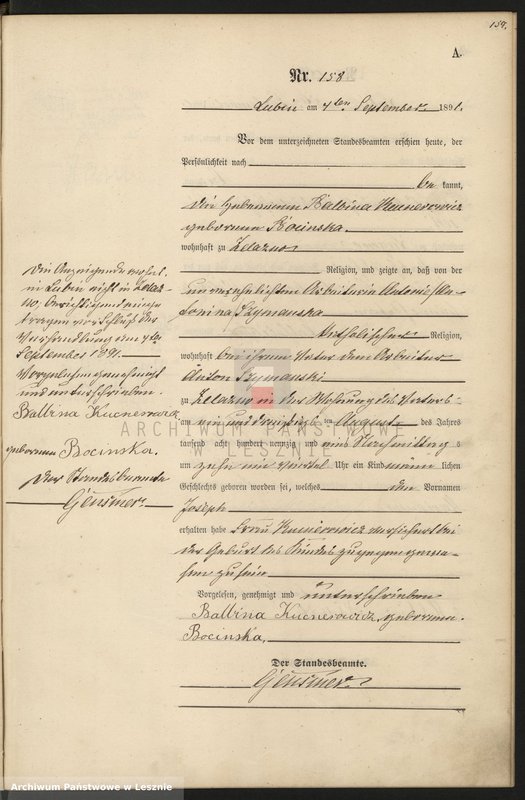 159.
A.
Nr. 158
Lubin am 4ten September 1891.
Vor dem unterzeichneten Standesbeamten erschien heute, der
Persönlichkeit nach
be kannt,
die Hebamme Balbina Kucnerowicz
geborene Bocinska
wohnhaft zu Zelazno
Religion, und zeigte an, daß von der
unverehelichten Arbeiterin Antonie
Szymanska
katholischer Religion,
wohnhaft bei ihrem Vater dem Arbeiter
Anton Szymanski
zu Zelazno in der Wohnung des Vaters
am ein und dreißigsten August des Jahres
tausend acht hundert neunzig und eins Nachmittag s
um zehn ein Viertel Uhr ein Kind männ lichen
Geschlechts geboren worden sei, welches den Vornamen
Joseph
erhalten habe Frau Kucnerowicz versichert bei
der Geburt des Kindes zugegen gewe-
sen zu sein
Vorgelesen, genehmigt und unterschrieben
Balbina Kucnerowicz, geborene
Bocinska.
Der Standesbeamte.
Gensmer
Die Anzeigende wohnt
in Lubin nicht in Zelaz-
no. Berichtigend einge-
tragen vor Schluß der
Verhandlung am 4ten
September 1891.
Vorgelesen genehmigt
und unterschrieben.
Balbina Kucnerowicz
geborene Bocinska.
Der Standesbeamte
Gensmer
ARCHIWUM PAŃSTWOWE
W LESZNIE
Archiwum Państwowe w Lesznie